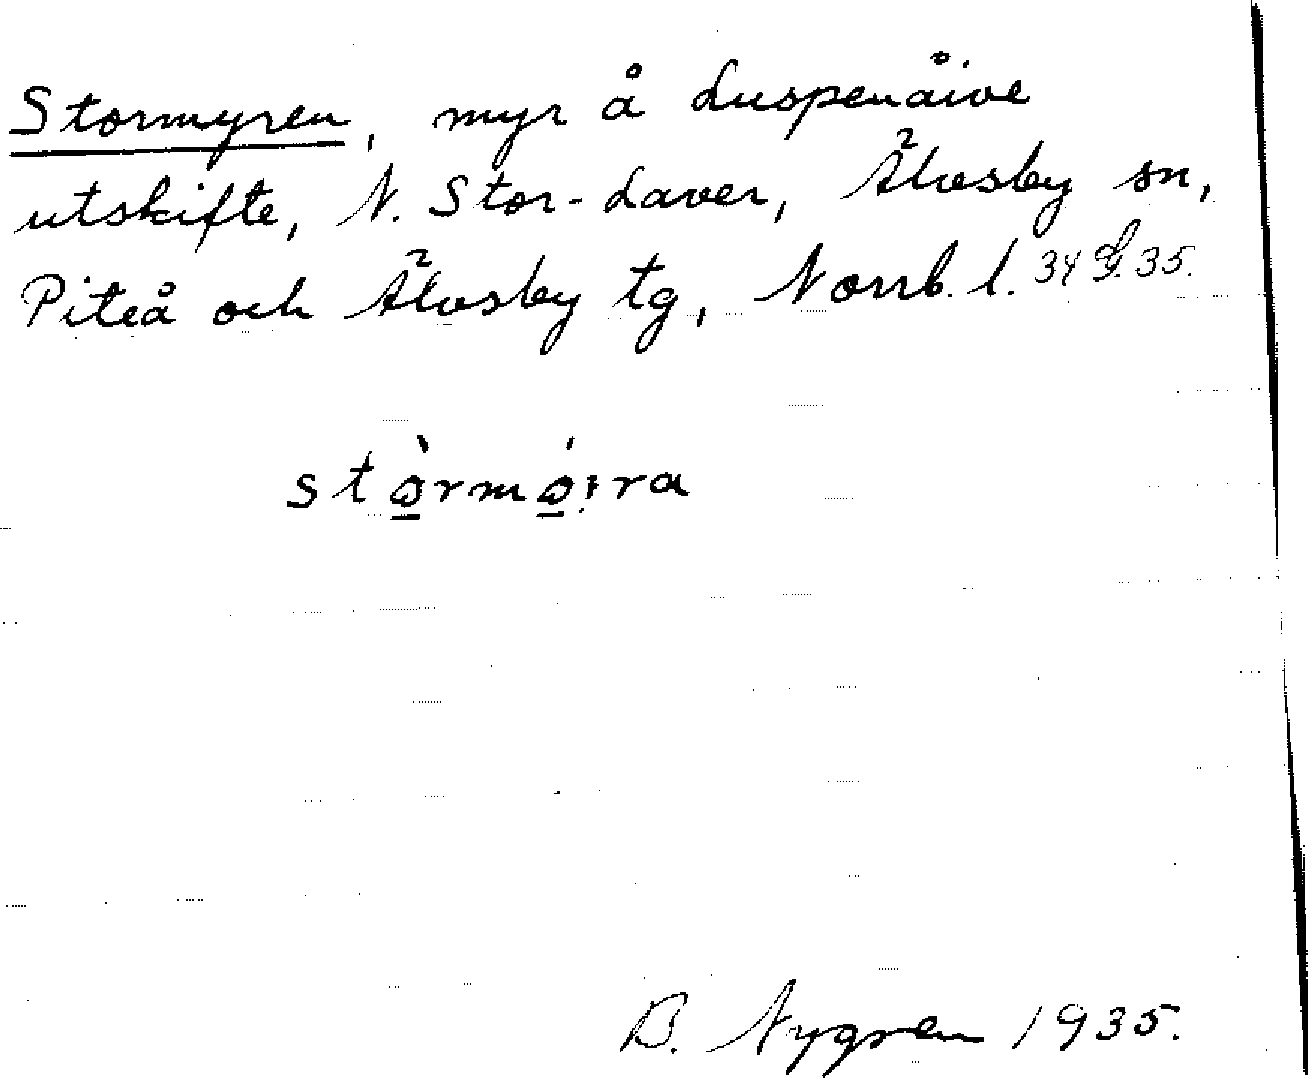 Stormyren, myr å Luspenåive
utskifte, N. Stor-Laver, Älvsby sn,
Piteå och Älvsby tg, Norrb. l. 34 35.
B. Nygren 1935.